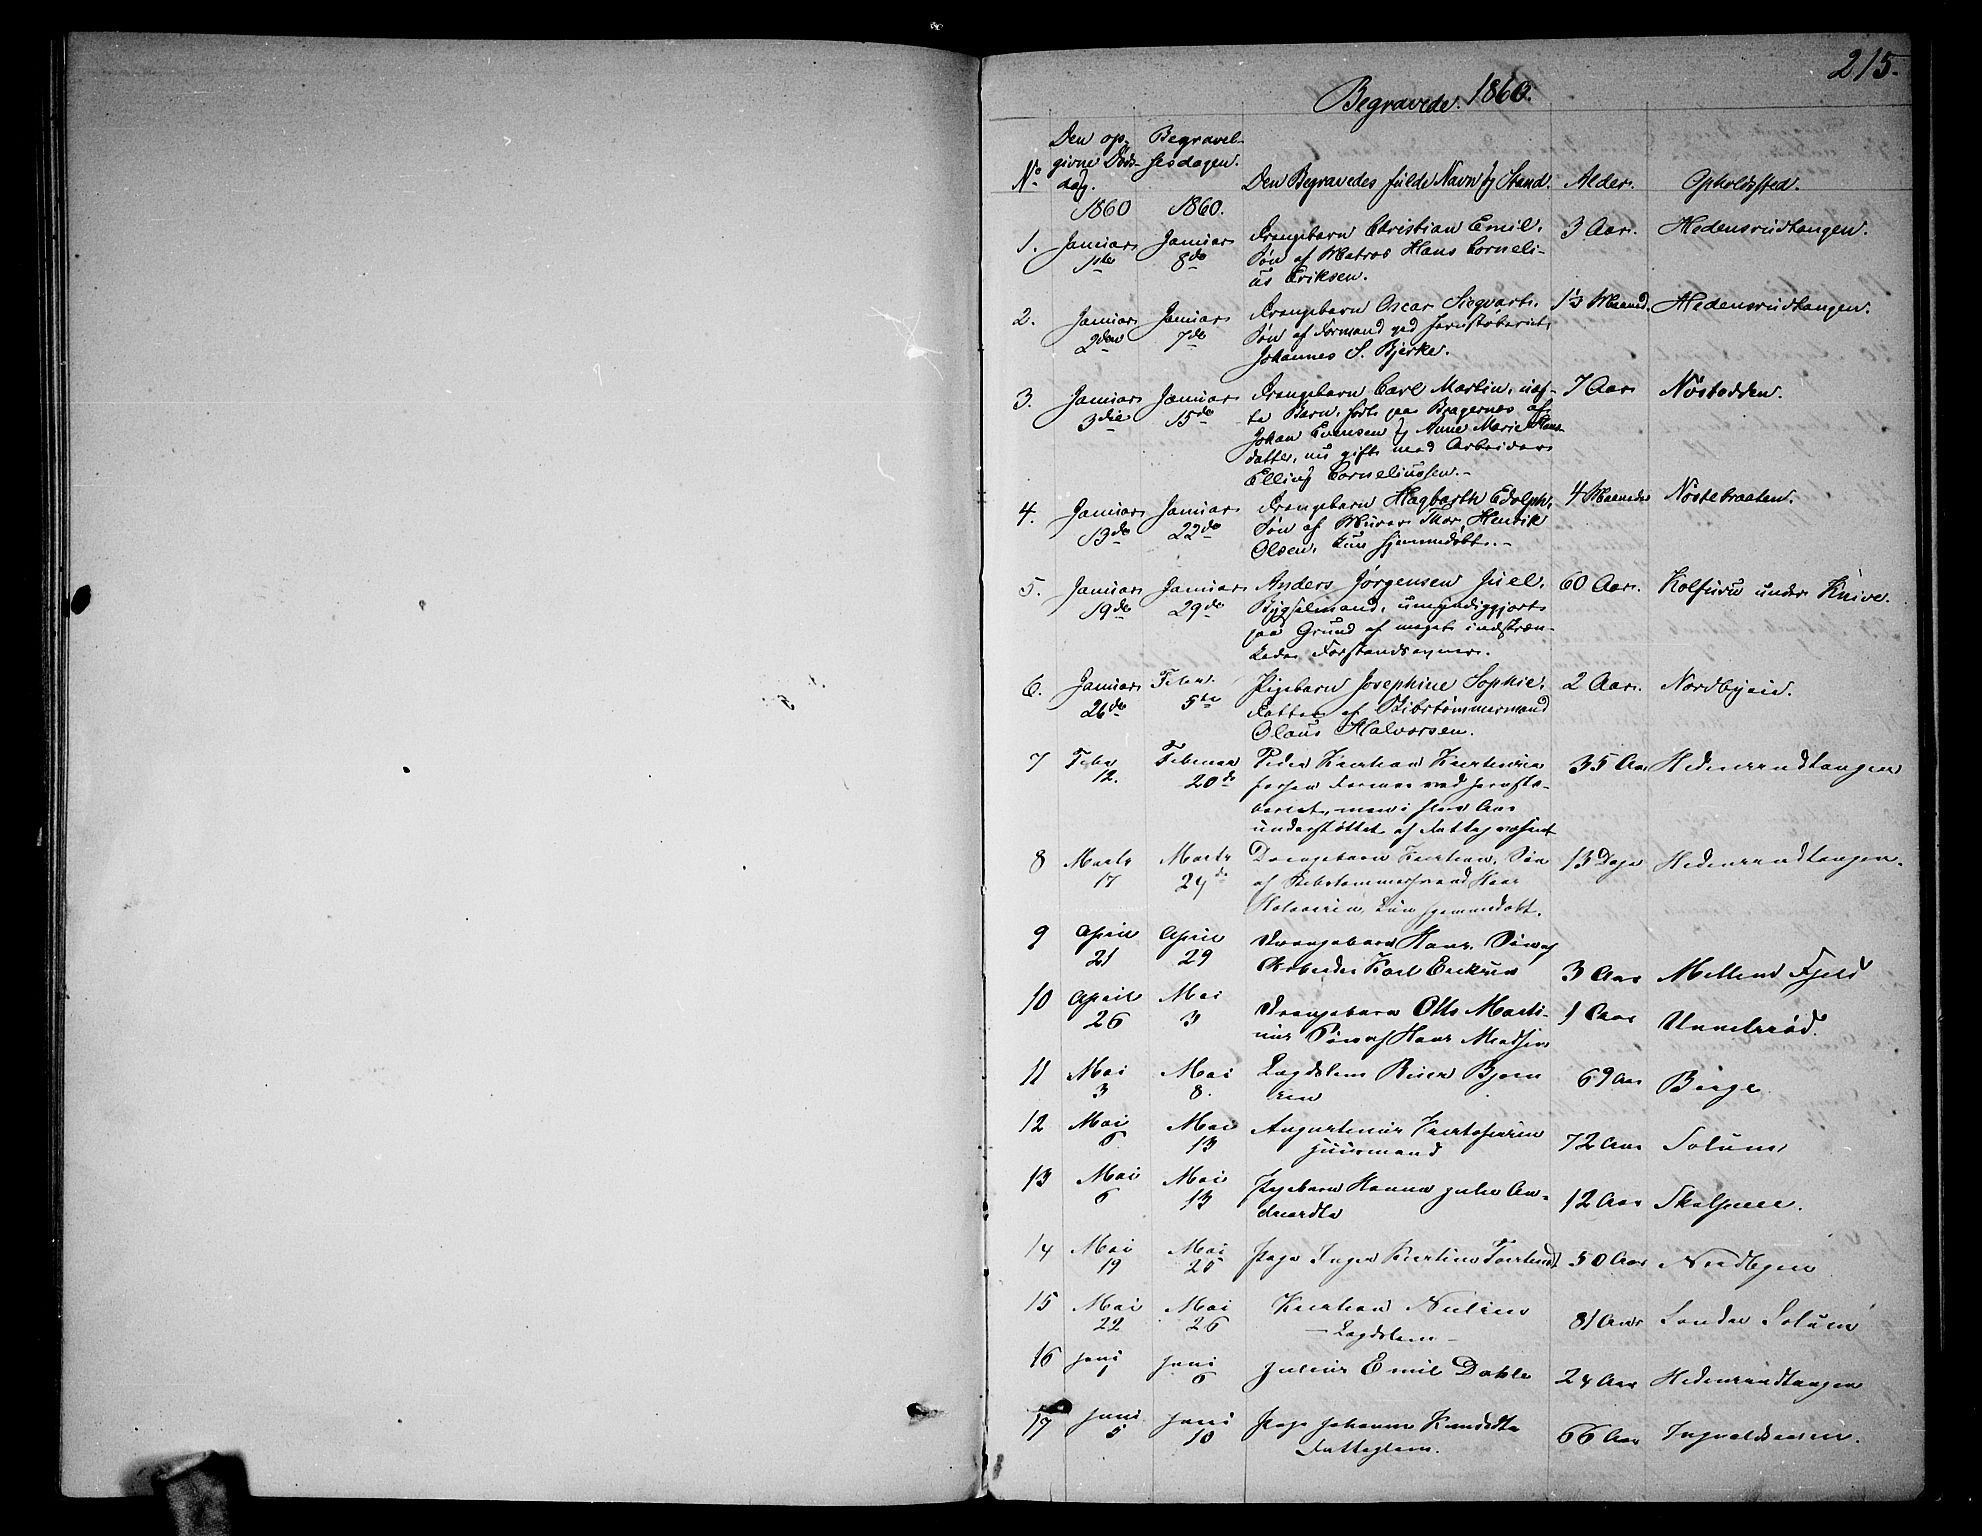 215.
Begravede. 1860.
No
Den op-
givne Døds-
dag.
Begravel-
sesdagen.
Den Begravedes fulde Navn og Stand.
Alder.
Opholdssted.
1860
1860.
1. Januar 1ste Januar 8de Drengebarn Christian Emil, 3 Aar. Hedensrudtangen.
Søn af Matros Hans Corneli-
us Eriksen.
2. Januar 2den Januar 7de Drengebarn Oscar Siegvart, 13 Maaned. Hedensrudtangen.
Søn af Formand ved Jernstøberiet
Johannes S. Bjerke.
3. Januar 3die Januar 15de Drengebarn Carl Martin, uæg- 7 Aar Nøstodden.
te Barn, født paa Bragernes af
Johan Evensen og Anne Marie Hans-
datter, nu gift med Arbeider
Elling Corneliussen.-
4. Januar 13de Januar 22de Drengebarn Hagbarth Edolph, 4 Maaneder Nøstebraaten.
Søn af Murer Thor Henrik
Olsen, kun hjemmedøbt.-
5. Januar 19de Januar 29de Anders Jørgensen Juel, 60 Aar. Kolfuru under Knive.
Bygselmand, umyndiggjort
paa Grund af meget indskræn-
kede Forstandsevner.
6. Januar 26de Febr. 5te Pigebarn Josephine Sophie, 2 Aar. Nordbyeie.
Datter af Skibstømmermand
Olaus Halvorsen.
7 Febr 12. Februar 20de Peder Kristian Kristensen 35 Aar Hedensrudtangen
forhen Former ved Jernstø-
beriet, men i flere Aar
understøttet af Fattigvæsnet
8 Marts 17 Marts 24de Drengebarn Kristian, Søn 13 Dage Hedensrudtangen.
af Skibstømmermand Hans
Halvorsen, kun hjemmedøbt.
9 April 21 April 29 Drengebarn Hans, Søn af
Arbeider Karl Eriksen 3 Aar Mellem Fjeld
10 April 26 Mai 3 Drengebarn Otto Marti- 1 Aar
nius Søn af Hans Madsen
11 Mai 3 Mai 8. Lægdslem 69 Aar Berge.
12 Mai 6 Mai 13 Augustinus Kristofersen 72 Aar Solum
Huusmand
13 Mai 6 Mai 13 Pigebarn Hanna Julie An- 12 Aar
14 Mai 19 Mai 25 Pige Inger Kristine 50 Aar Nordbyeie
15 Mai 22 Mai 26 Kristian Nielsen 81 Aar Søndre Solum
- Lægdslem -
16 Juni 1 Juni 6 Julius Emil Dahle 24 Aar Hedensrudtangen
17 Juni 5 Juni 10 Pige Johanne Knudsdtr 66 Aar
Fattiglem.